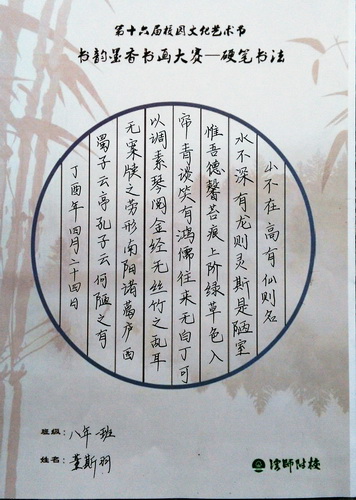 第十六届校园文化艺术节
书韵墨香书画大赛—硬笔书法
山不在高有仙则名
水不深有龙则灵斯是陋室
惟吾德馨苔痕上阶绿草色入
帘青谈笑有鸿儒往来无白丁可
以调素琴阅金经无丝竹之乱耳
无案牍之劳形南阳诸葛庐西
蜀子云亭孔子云何陋之有
丁酉年四月二十四日
班级：八年一班
姓名：董斯羽
师附校